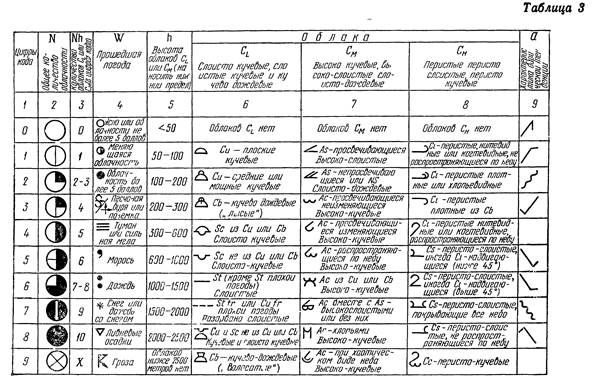 Таблица 3
Облака
Цифры кода
N
общее количество облачности
Nh
количество облаков CL или CM цифр кода
W
Прошедшая погода
h
Высота облаков CL или CM (на носить нижний предел)
CL
Слоисто кучевые, слоистые кучевые и кучево дождевые
CM
Высоко кучевые, высоко-слоистые слоисто-дождевые
CH
Перистые перисто слоистые, перисто кучевые
a
1 2 3 4 5 6 7 8 9
0 0 <50 Облаков CL нет Облаков CM нет Облаков CH нет
более 5 баллов
1 1 Меняющаяся облачность 50-100 Cu - плоские кучевые As-просвечивающиеся Высоко-слоистые Ci-перистые нитевидные или когтевидные, не распространяющиеся по небу
2 2-3 Облачность более 5 баллов 100-200 Cu - средние или мощные кучевые As-непросвечивающиеся или NS Слоисто-дождевые Ci-перистые плотные или хлопьевидные
3 4 Песчаная буря или поземка 200-300 Cb-кучево дождевые („лысые") Ac-просвечивающиеся неизменяющиеся Высоко-кучевые Ci-перистые плотные из Cb
4 5 Туман или сильная мгла 300-600 Sc из Cu или Cb Слоисто кучевые Ac-просвечивающиеся изменяющиеся Высоко-кучевые Ci-перистые нитевидные или когтевидные, распространяющиеся по небу
5 6 Морось 600-1000 Sc не из Cu или Cb Слоисто кучевые Ac-распространяющиеся по небу Высоко-кучевые Cs-перисто-слоистые, иногда Ci-надвигающиеся (ниже 45°)
6 7-8 Дождь 1000-1500 St (кроме St плохой погоды) Слоистые Ac из Cu или Cb Высоко-кучевые Cs-перисто-слоистые, иногда Ci-надвигающиеся (выше 45°)
7 9 Снег или дождь со снегом 1500-2000 St fr или Cu fr плохой погоды Разорванно слоистые Ac вместе с As-высокослоистыми или без них Cs-перисто-слоистые, покрывающие все небо
8 10 Ливневые осадки 2000-2500 Cu и Sc не из Cu или Cb Кучевые и слоисто кучевые Ac-хлопьями Высоко-кучевые Cs-перисто-слоистые, не распространяющиеся по небу
9 X Гроза Облаков ниже 2500 метров нет Cb-кучево-дождевые („волосатые") Ac-при хаотическом виде неба Высоко-кучевые Cc-перисто-кучевые